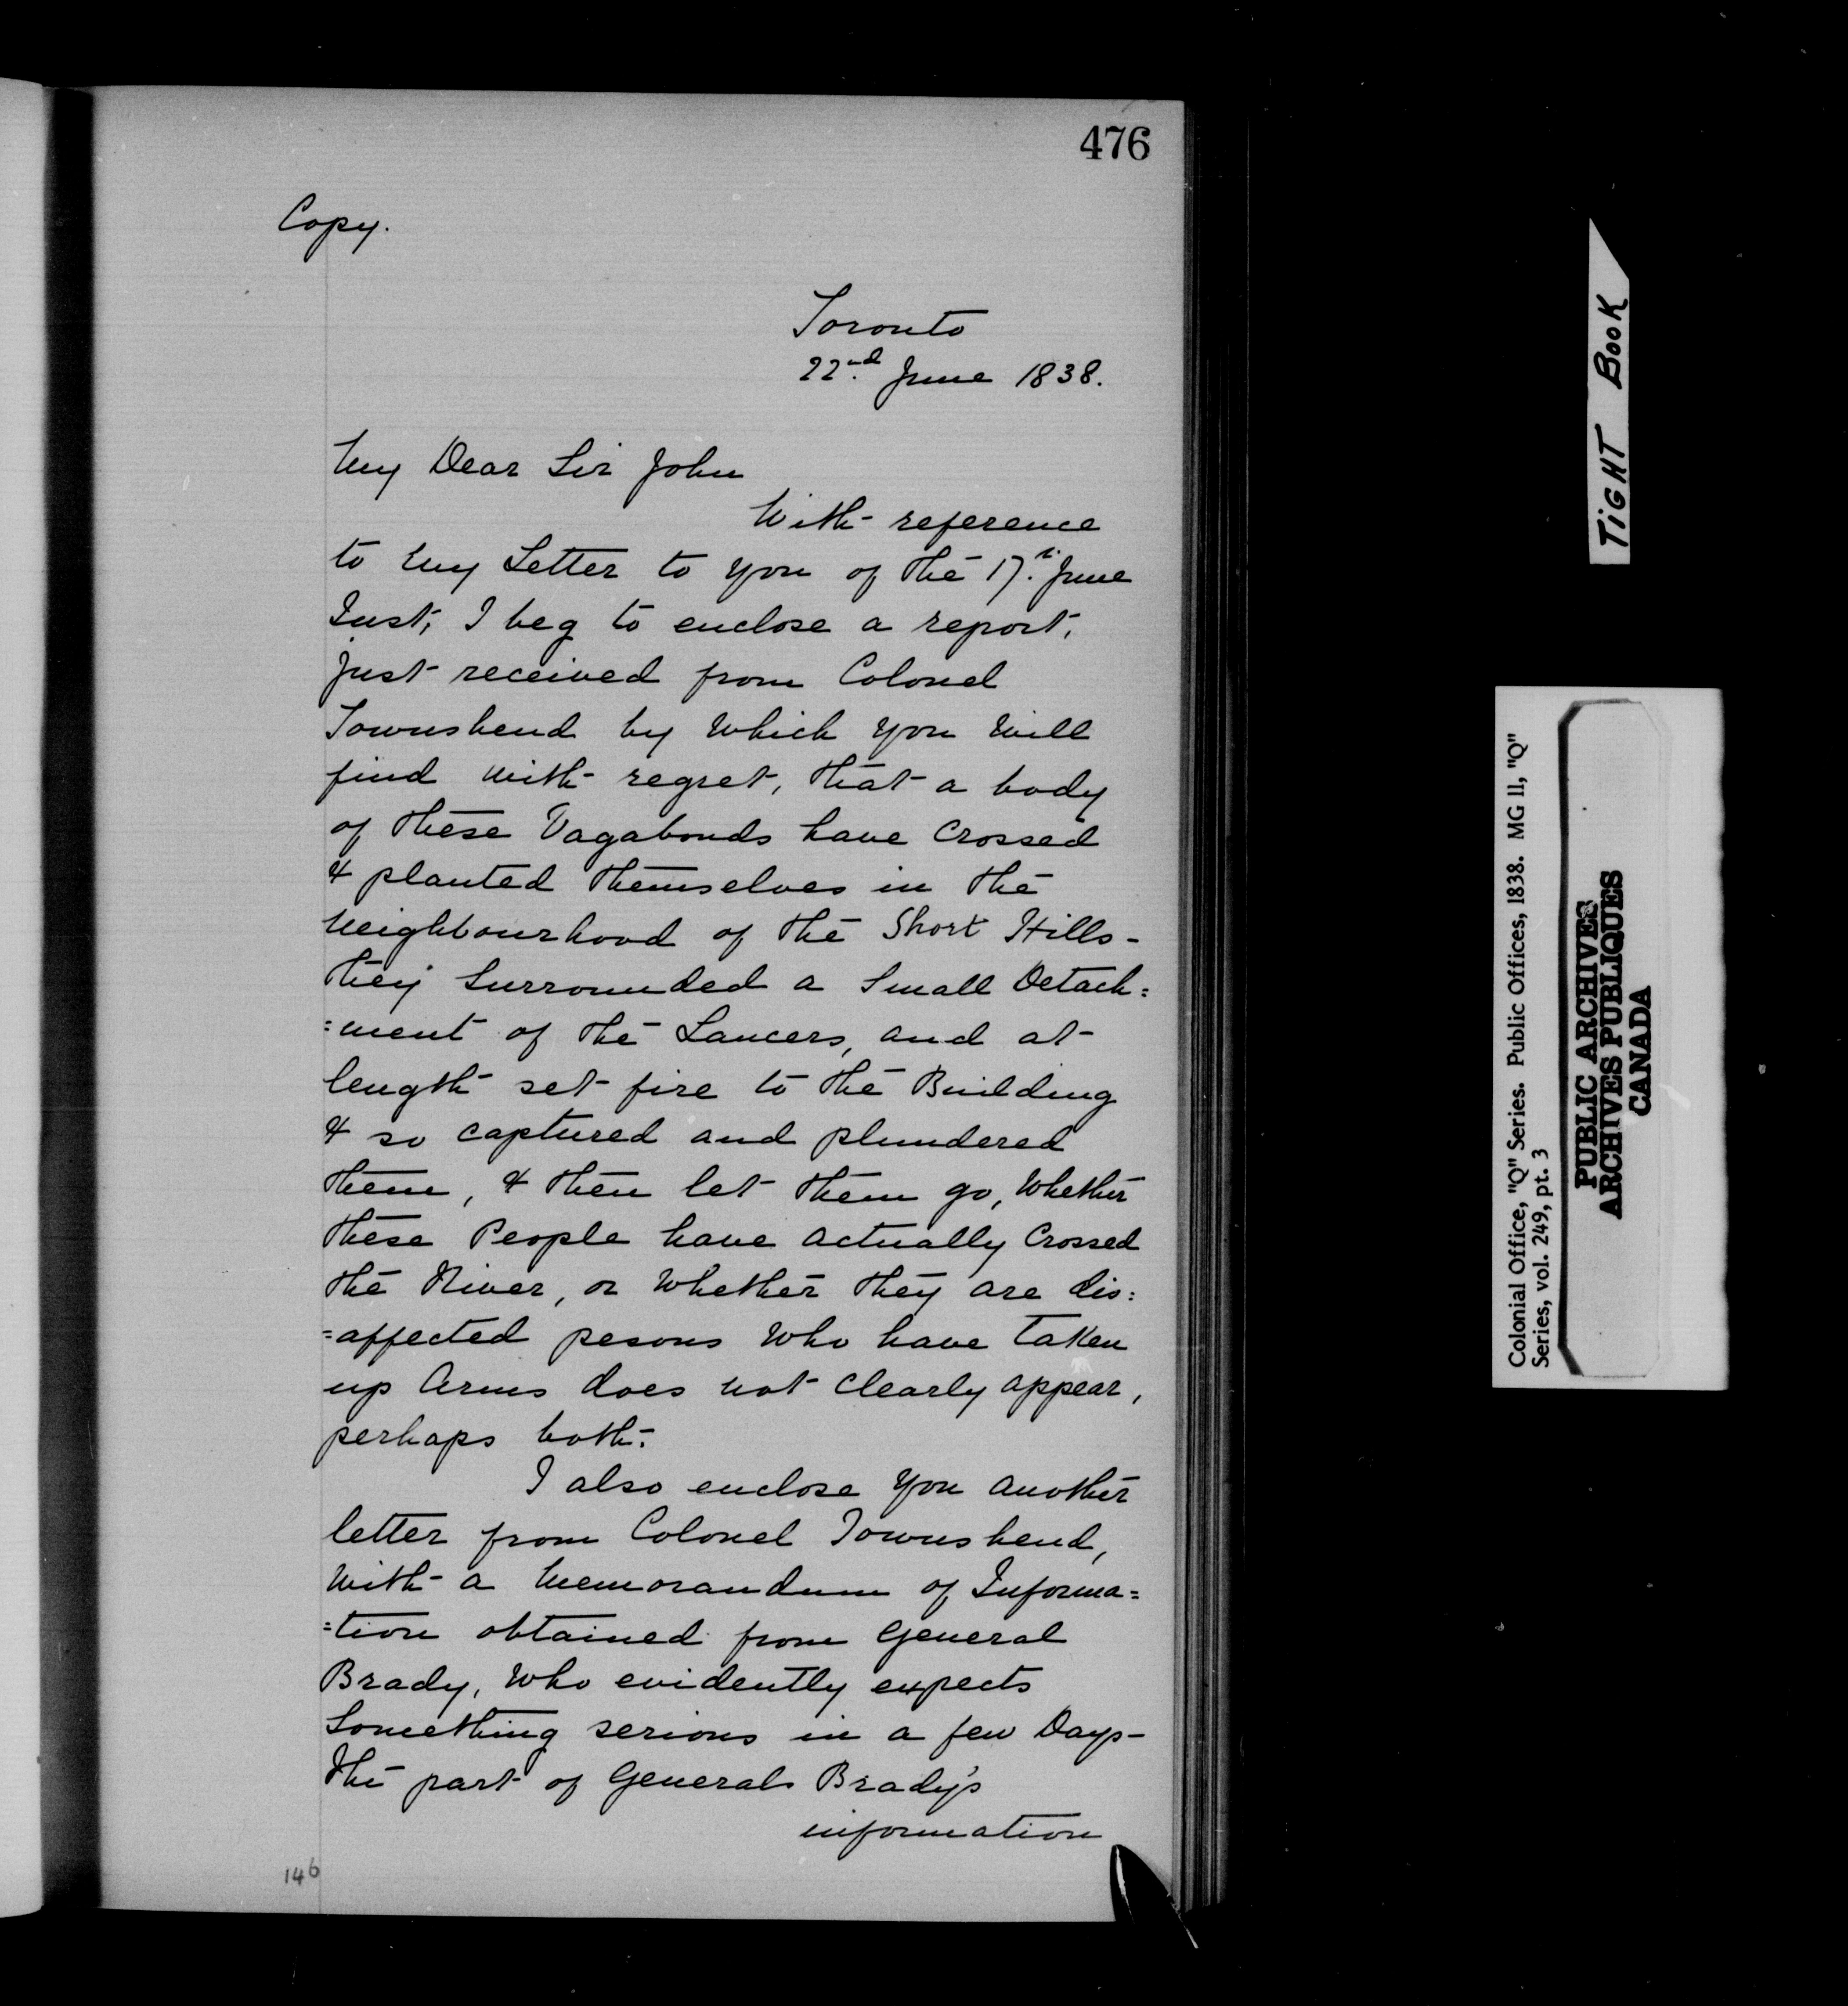 476
Copy.
Toronto
22nd. June 1838.
My Dear Sir John
With reference
to my Letter to you of the 17th. June
Inst; I beg to enclose a report,
just received from Colonel
Townshend by which you will
find with regret, that a body
of these Vagabonds have Crossed
& planted themselves in the
neighbourhood of the Short Hills -
they Surrounded a Small Detach:
:ment of the Lancers, and at
length set fire to the Building
& so captured and plundered
them, & then let them go, Whether
these People have actually Crossed
the River, or Whether they are dis:
=affected pesons Who have taken
up Arms does not Clearly appear,
perhaps both.
I also enclose you another
letter from Colonel Townshend,
With a Memorandum of Informa=
:tion obtained from General
Brady, Who evidently expects
Something serious in a few Days -
The part of Generals Brady's
information
146
TiGHT BOOK
Colonial Office, "Q" Series. Public Offices, 1838. MG 11, "Q"
Series, vol. 249, pt. 3
PUBLIC ARCHIVES
ARCHIVES PUBLIQUES
CANADA